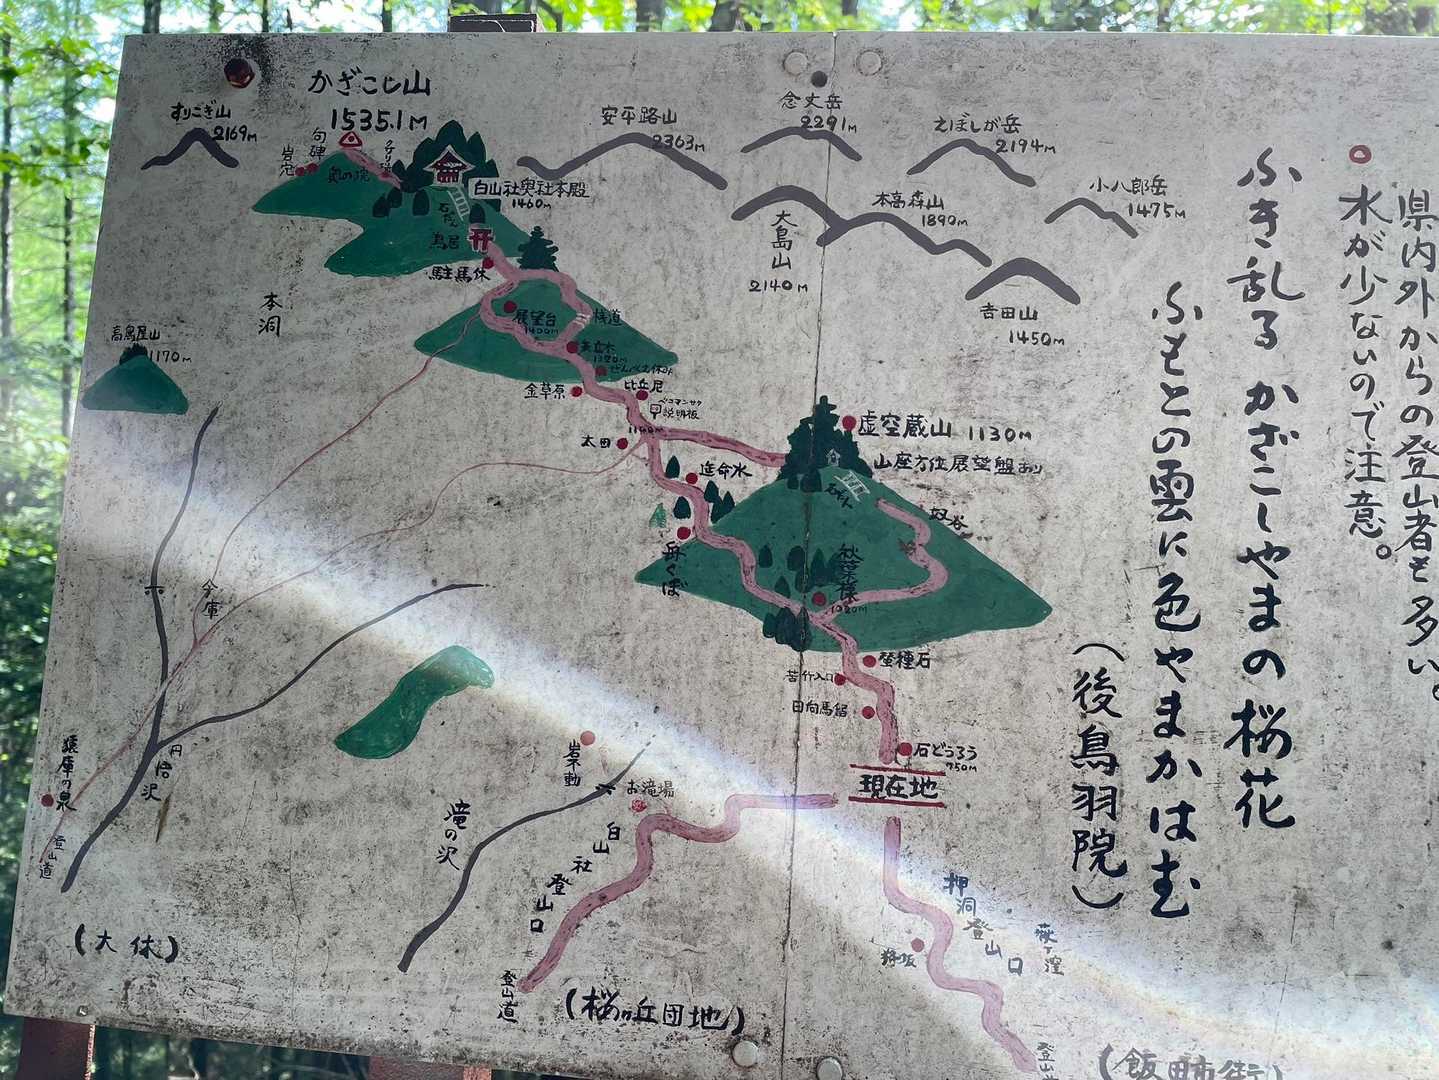 かざこし山
1535.1M
すりこぎ山
2169M
安平路山
2363M
念丈岳
2291M
えぼしが岳
2194M
小八郎岳
1475M
本高森山
1890M
大島山
2140M
吉田山
1450M
句碑
岩穴
奥の院
白山社奥社本殿
1460M
石だん
鳥居
駐馬休
本洞
高鳥屋山
1170M
展望台
1400M
桟道
矢立木
1320M
せんべえ休み
金草原
比丘尼
ベニマンサク
説明板
1100M
太田
延命水
虚空蔵山 1130M
山座方位展望盤あり
石だん
秋葉様
1020M
蚕種石
苦行入口
日向馬留
石どうろう
750M
現在地
今庫
円悟沢
猿庫の泉
登山道
(大休)
岩不動
お滝場
滝の沢
白山社登山口
登山道
(桜ヶ丘団地)
押洞登山口
萩ヶ窪
(飯田市街)
ふき乱る かざこしやまの桜花
ふもとの雲に色やまかはむ
(後鳥羽院)
県内外からの登山者も多い。
水が少ないので注意。